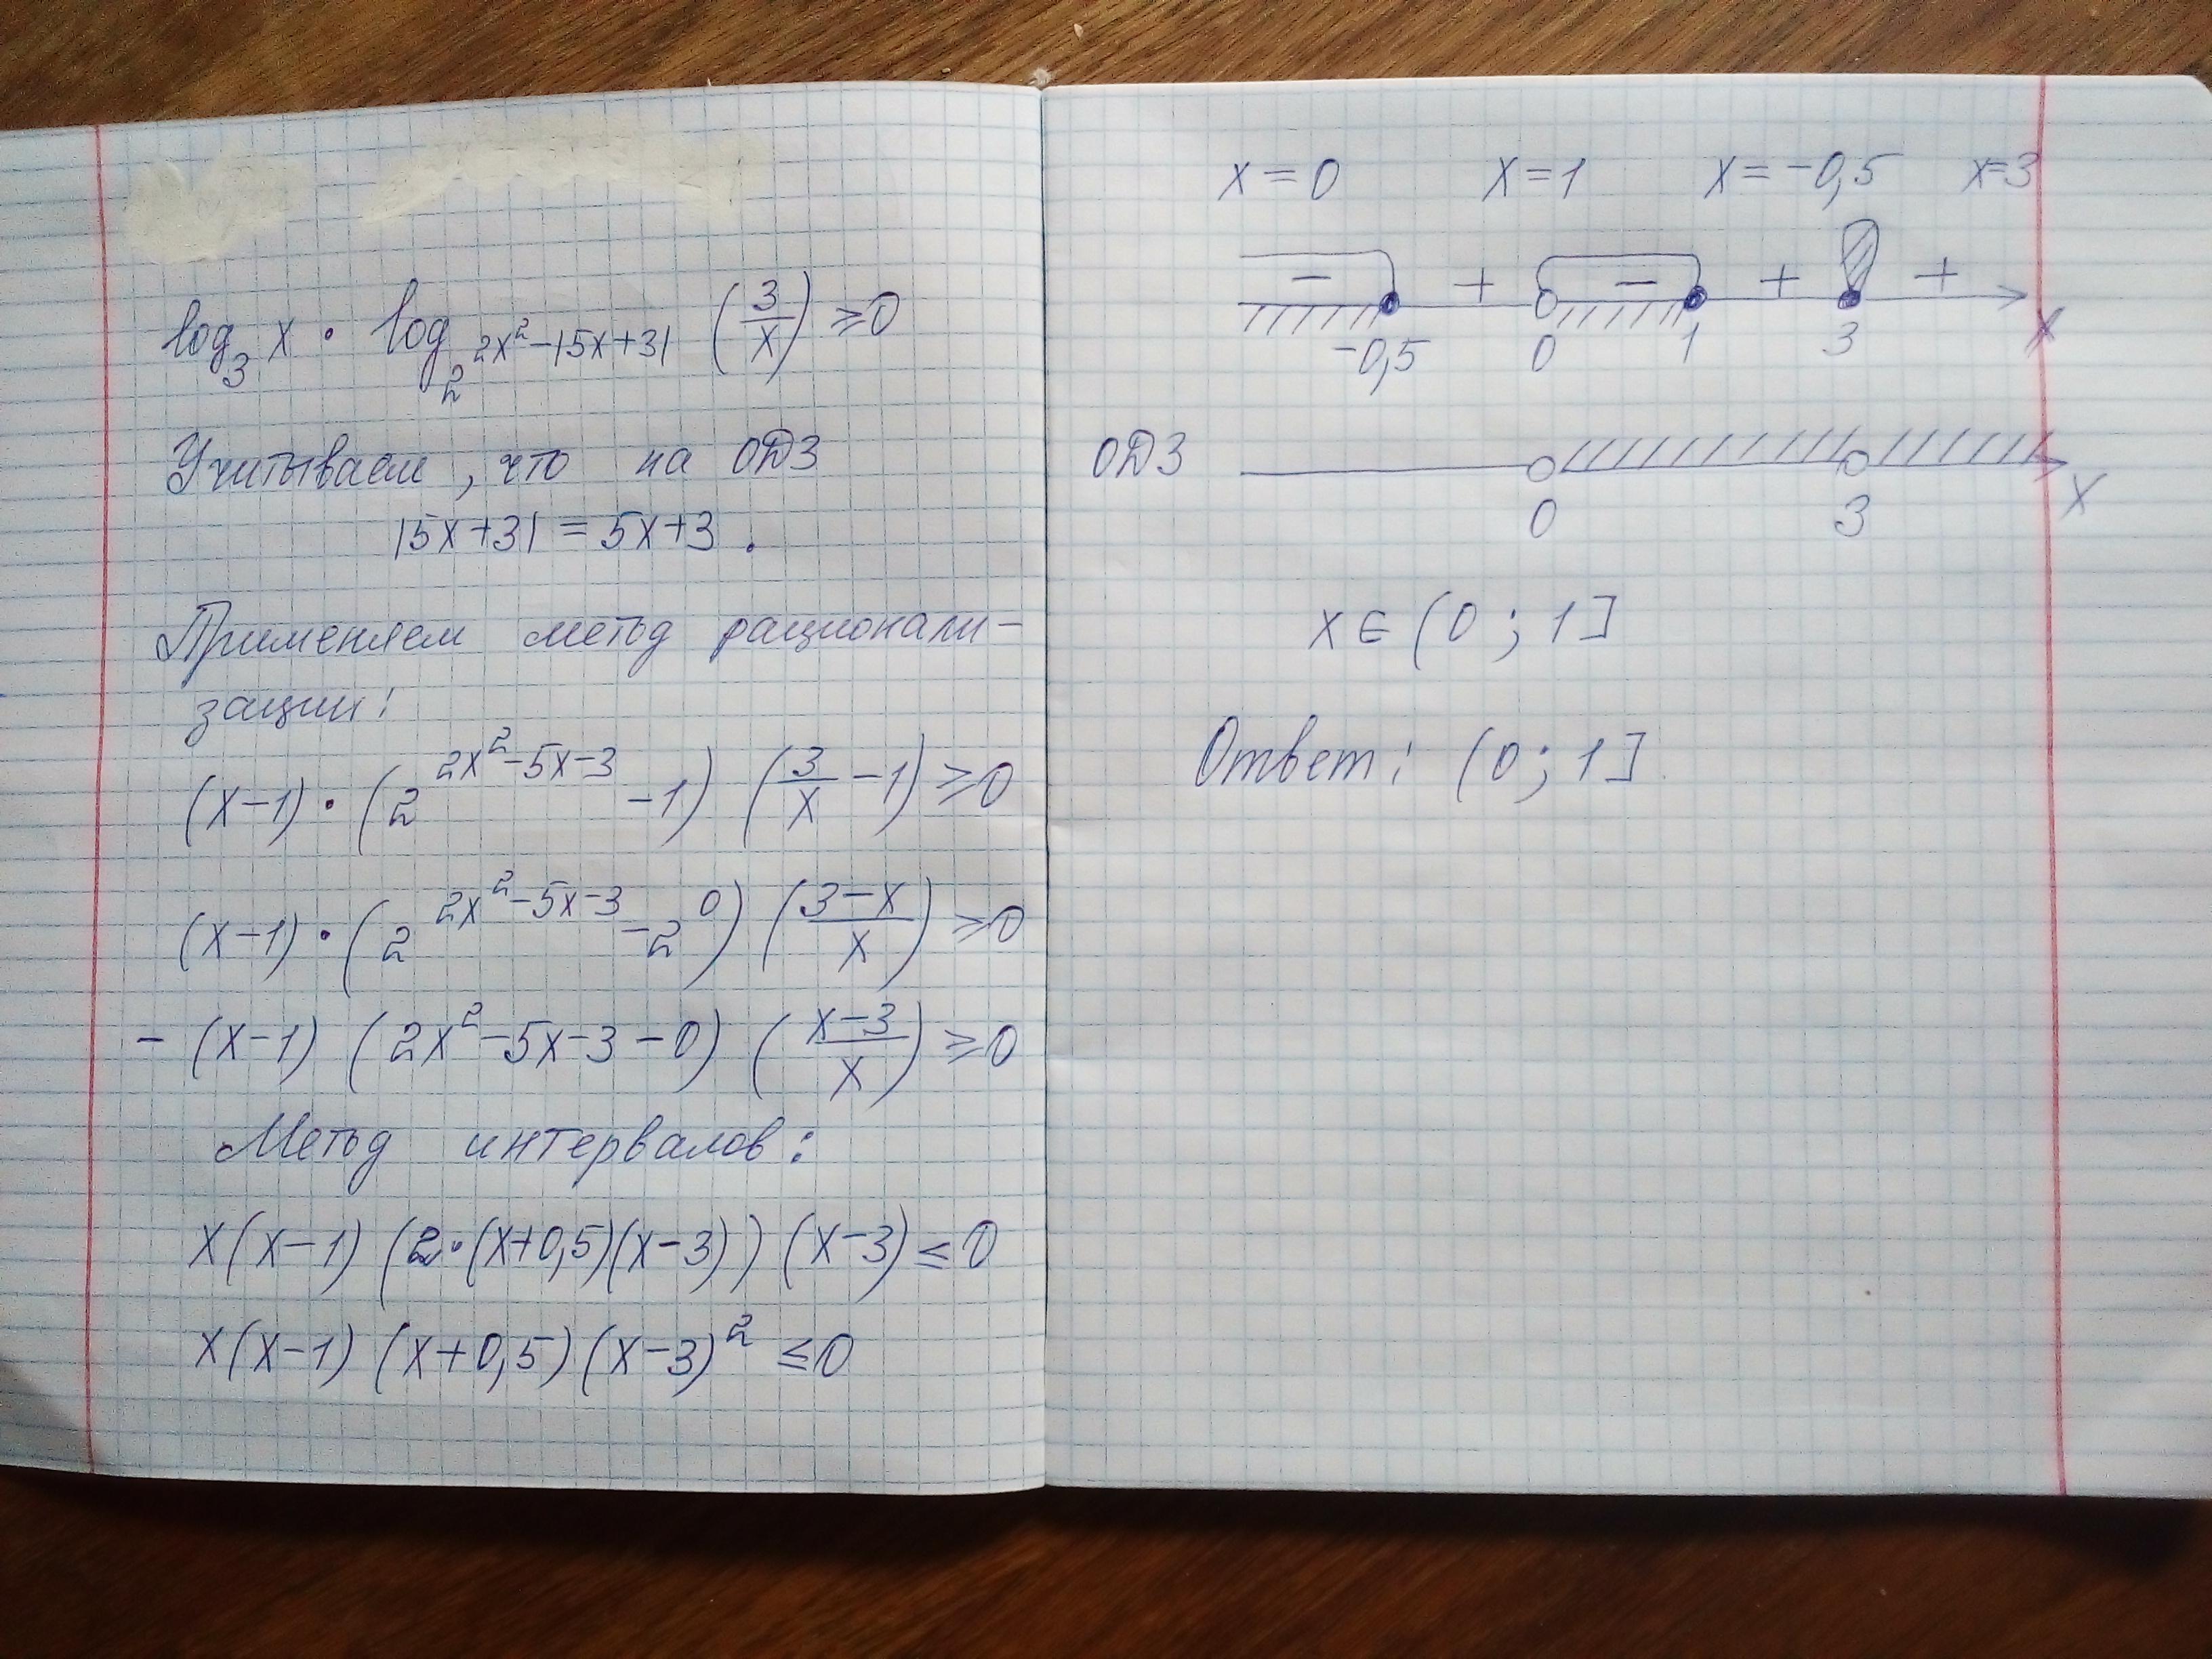 log₃ x · log_{2^{2x²-|5x+3|}} (3/x) ≥ 0
Учитываем, что на ОДЗ
|5x+3| = 5x+3 .
Применяем метод рационали-
зации:
(x-1) · (2^{2x²-5x-3} -1) (3/x -1) ≥ 0
(x-1) · (2^{2x²-5x-3} - 2⁰) ((3-x)/x) ≥ 0
- (x-1) (2x²-5x-3-0) ((x-3)/x) ≥ 0
Метод интервалов:
x(x-1) (2·(x+0,5)(x-3)) (x-3) ≤ 0
x(x-1) (x+0,5) (x-3)² ≤ 0
x=0 x=1 x=-0,5 x=3
- + - + +
-0,5 0 1 3 x
ОДЗ
0 3 x
x ∈ (0 ; 1]
Ответ: (0 ; 1]